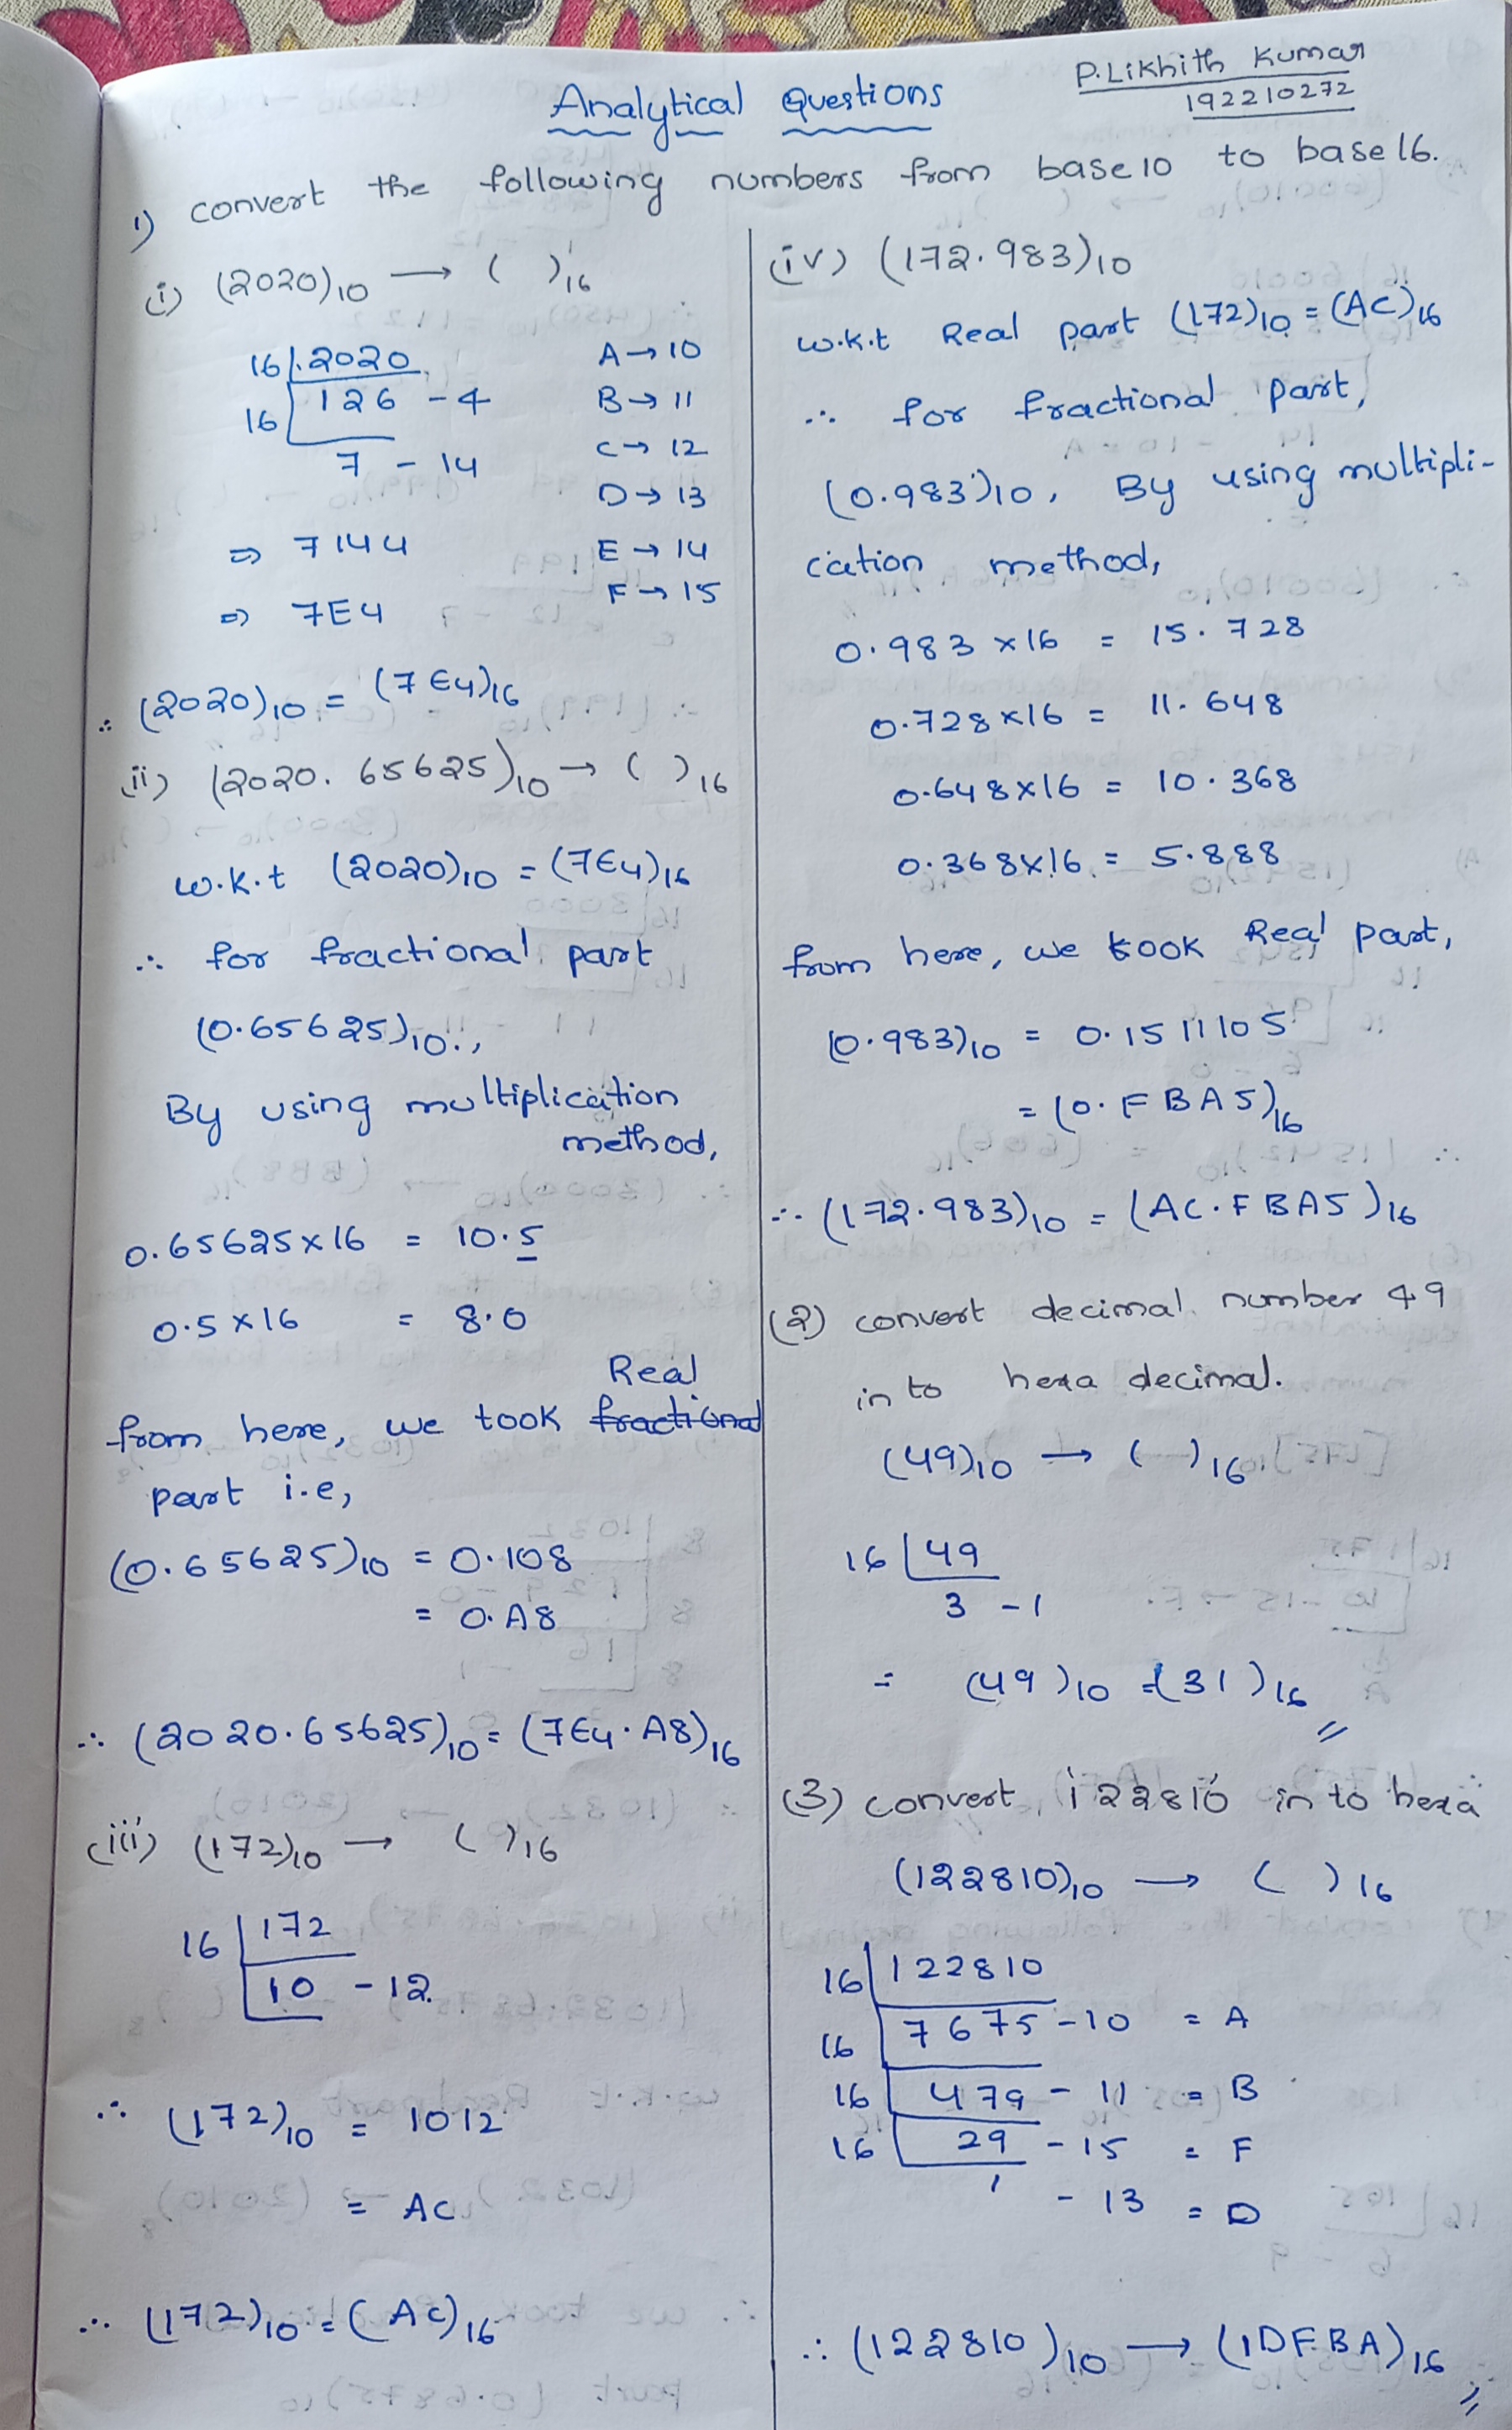 Analytical Questions
P.Likhith Kumar
192210272
1) convert the following numbers from base 10 to base 16.
(i) (2020)10 → ( )16
16 2020
16 126 - 4
7 - 14
⇒ 7 14 4
⇒ 7E4
A → 10
B → 11
C → 12
D → 13
E → 14
F → 15
∴ (2020)10 = (7E4)16
(ii) (2020.65625)10 → ( )16
w.k.t (2020)10 = (7E4)16
∴ for fractional part
(0.65625)10,
By using multiplication
method,
0.65625 x 16 = 10.5
0.5 x 16 = 8.0
Real
from here, we took fractional
part i.e,
(0.65625)10 = 0.108
= 0.A8
∴ (2020.65625)10 = (7E4.A8)16
(iii) (172)10 → ( )16
16 172
10 - 12
∴ (172)10 = 1012
= AC
∴ (172)10 = (AC)16
(iv) (172.983)10
w.k.t Real part (172)10 = (AC)16
∴ for fractional part,
(0.983)10, By using multipli-
cation method,
0.983 x 16 = 15.728
0.728 x 16 = 11.648
0.648 x 16 = 10.368
0.368 x 16 = 5.888
from here, we took Real part,
(0.983)10 = 0.15 11 10 5
= (0.FBA5)16
∴ (172.983)10 = (AC.FBA5)16
(2) convert decimal number 49
in to hexa decimal.
(49)10 → ( )16
16 49
3 - 1
= (49)10 = (31)16
(3) convert 122810 in to hexa
(122810)10 → ( )16
16 122810
16 7675 - 10 = A
16 479 - 11 = B
16 29 - 15 = F
1 - 13 = D
∴ (122810)10 → (1DFBA)16